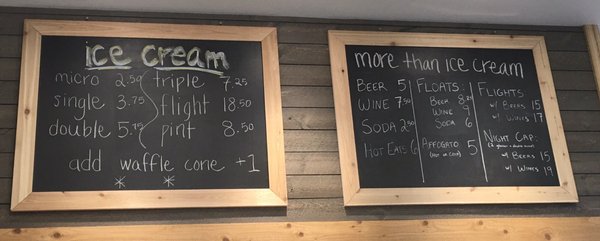 ice cream
micro 2.50
single 3.75
double 5.75
triple 7.25
flight 18.50
pint 8.50
add waffle cone +1
more than ice cream
Beer 5
Wine 7.50
Soda 2.50
Hot Eats 6
Floats:
Beer 8.25
Wine 9
Soda 6
Affogato 5
(hot or cold)
Flights
w/ Beers 15
w/ Wines 17
Night Cap:
w/ Beers 15
w/ Wines 19